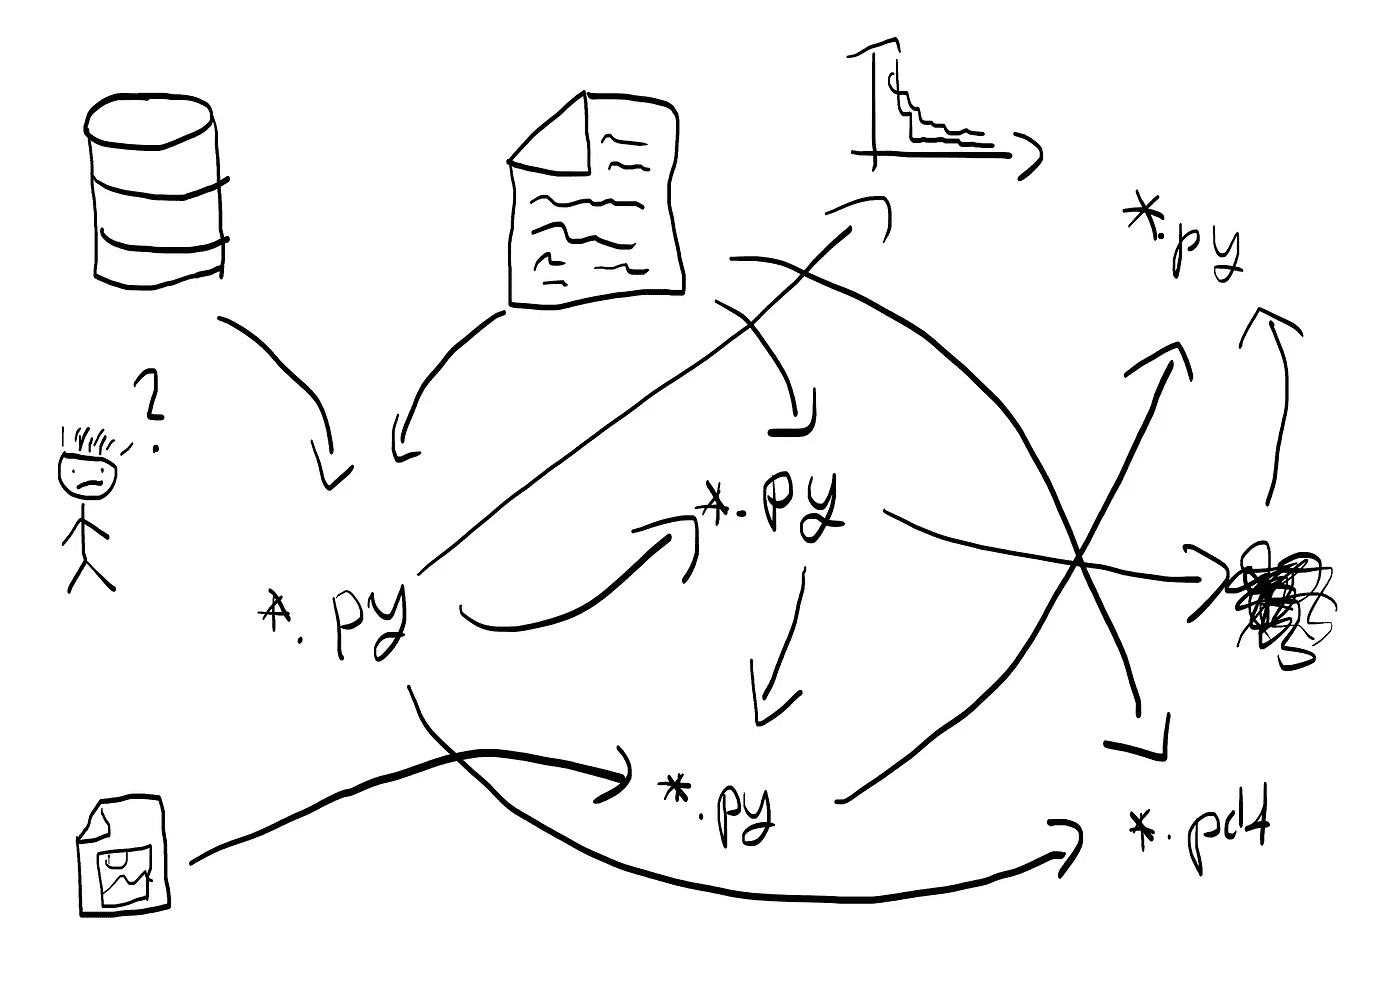 *.py
?
*.py
*.py
*.py
*.pdf